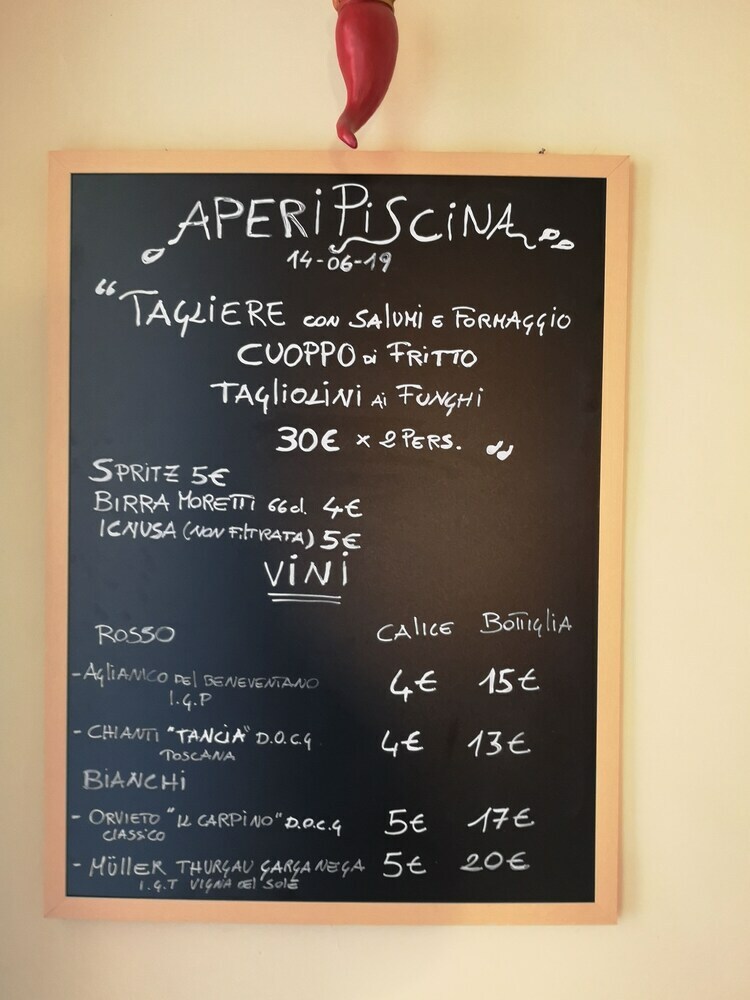 APERiPiSCiNA
14-06-19
"TAGLIERE CON SALUMI E FORMAGGIO
CUOPPO di FRITTO
TAGLIOLINI Ai FUNGHI
30€ x 2 PERS. "
SPRITZ 5€
BIRRA MORETTI 66cl. 4€
ICNUSA (NON FILTRATA) 5€
ViNi
ROSSO CALICE BOTTIGLIA
- AGLIANICO DEL BENEVENTANO 4€ 15€
I.G.P
- CHIANTI "TANCIA" D.O.C.G 4€ 13€
TOSCANA
BIANCHI
- ORVIETO "IL CARPINO" D.O.C.G 5€ 17€
CLASSICO
- MÜLLER THURGAU GARGANEGA 5€ 20€
I.G.T VIGNA DEL SOLE